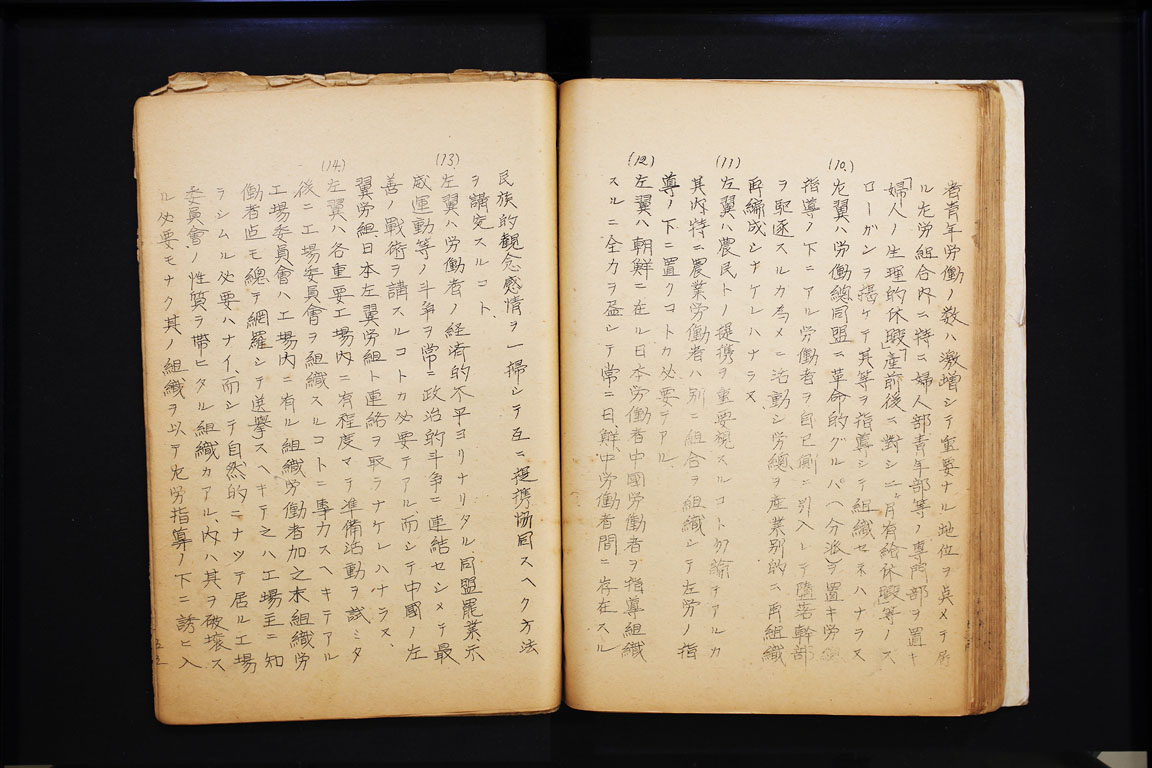 者青年労働ノ数ハ激増シテ重要ナル地位ヲ占メテ居
ル左労組合内ニ特ニ婦人部青年部等ノ専門部ヲ置キ
「婦人ノ生理的休職」「産前後ニ対シ二ヶ月有給休職」等ノス
ローガンヲ揚ケテ其等ヲ指導シテ組織セネハナラヌ
(10)
左翼ハ労働總同盟ニ革命的グルパヘ分派ヲ置キ労總
指導ノ下ニアル労働者ヲ自己側ニ引入レテ墮落幹部
ヲ駆逐スルカ為メニ活動シ労總ヲ産業別的ニ再組織
再編成シナケレハナラヌ
(11)
左翼ハ農民トノ提携ヲ重要視スルコト勿論テアルカ
其内特ニ農業労働者ハ別ニ組合ヲ組織シテ左労ノ指
導ノ下ニ置クコトカ必要テアル
(12)
左翼ハ朝鮮ニ在ル日本労働者中國労働者ヲ指導組織
スルニ全力ヲ盡シテ常ニ日、鮮中労働者間ニ存在スル
民族的観念感情ヲ一掃シテ互ニ提携協同スヘク方法
ヲ講究スルコト、
(13)
左翼ハ労働者ノ経済的不平ヨリナリタル、同盟罷業示
威運動等ノ斗争ヲ常ニ政治的斗争ニ連結セシメテ最
善ノ戦術ヲ講スルコトカ必要テアル、而シテ中國ノ左
翼労組日本左翼労組ト連絡ヲ取ラナケレハナラヌ、
(14)
左翼ハ各重要工場内ニ有程度マテ準備活動ヲ試ミタ
後ニ工場委員會ヲ組織スルコトニ專力スヘキテアル
工場委員會ハ工場内ニ有ル組織労働者加之未組織労
働者迠モ總テ網羅シテ送擧スヘキテ之ハ工場主ニ知
ラシムル必要ハナイ而シテ自然的ニナツテ居ル工場
委員會ノ性質ヲ帯ヒタル組織カアル、内ハ其ヲ破壞ス
ル必要モナク其ノ組織ヲ以テ左労指導ノ下ニ誘ヒ入